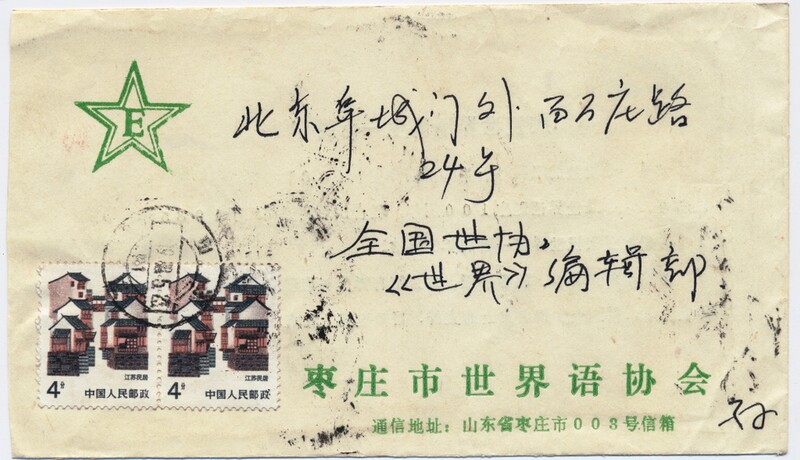 E
北京阜城门外百万庄路
24号
全国世协.
《世界》编辑部
江苏民居
4分
中国人民邮政
江苏民居
4分
中国人民邮政
枣庄市世界语协会
通信地址：山东省枣庄市003号信箱